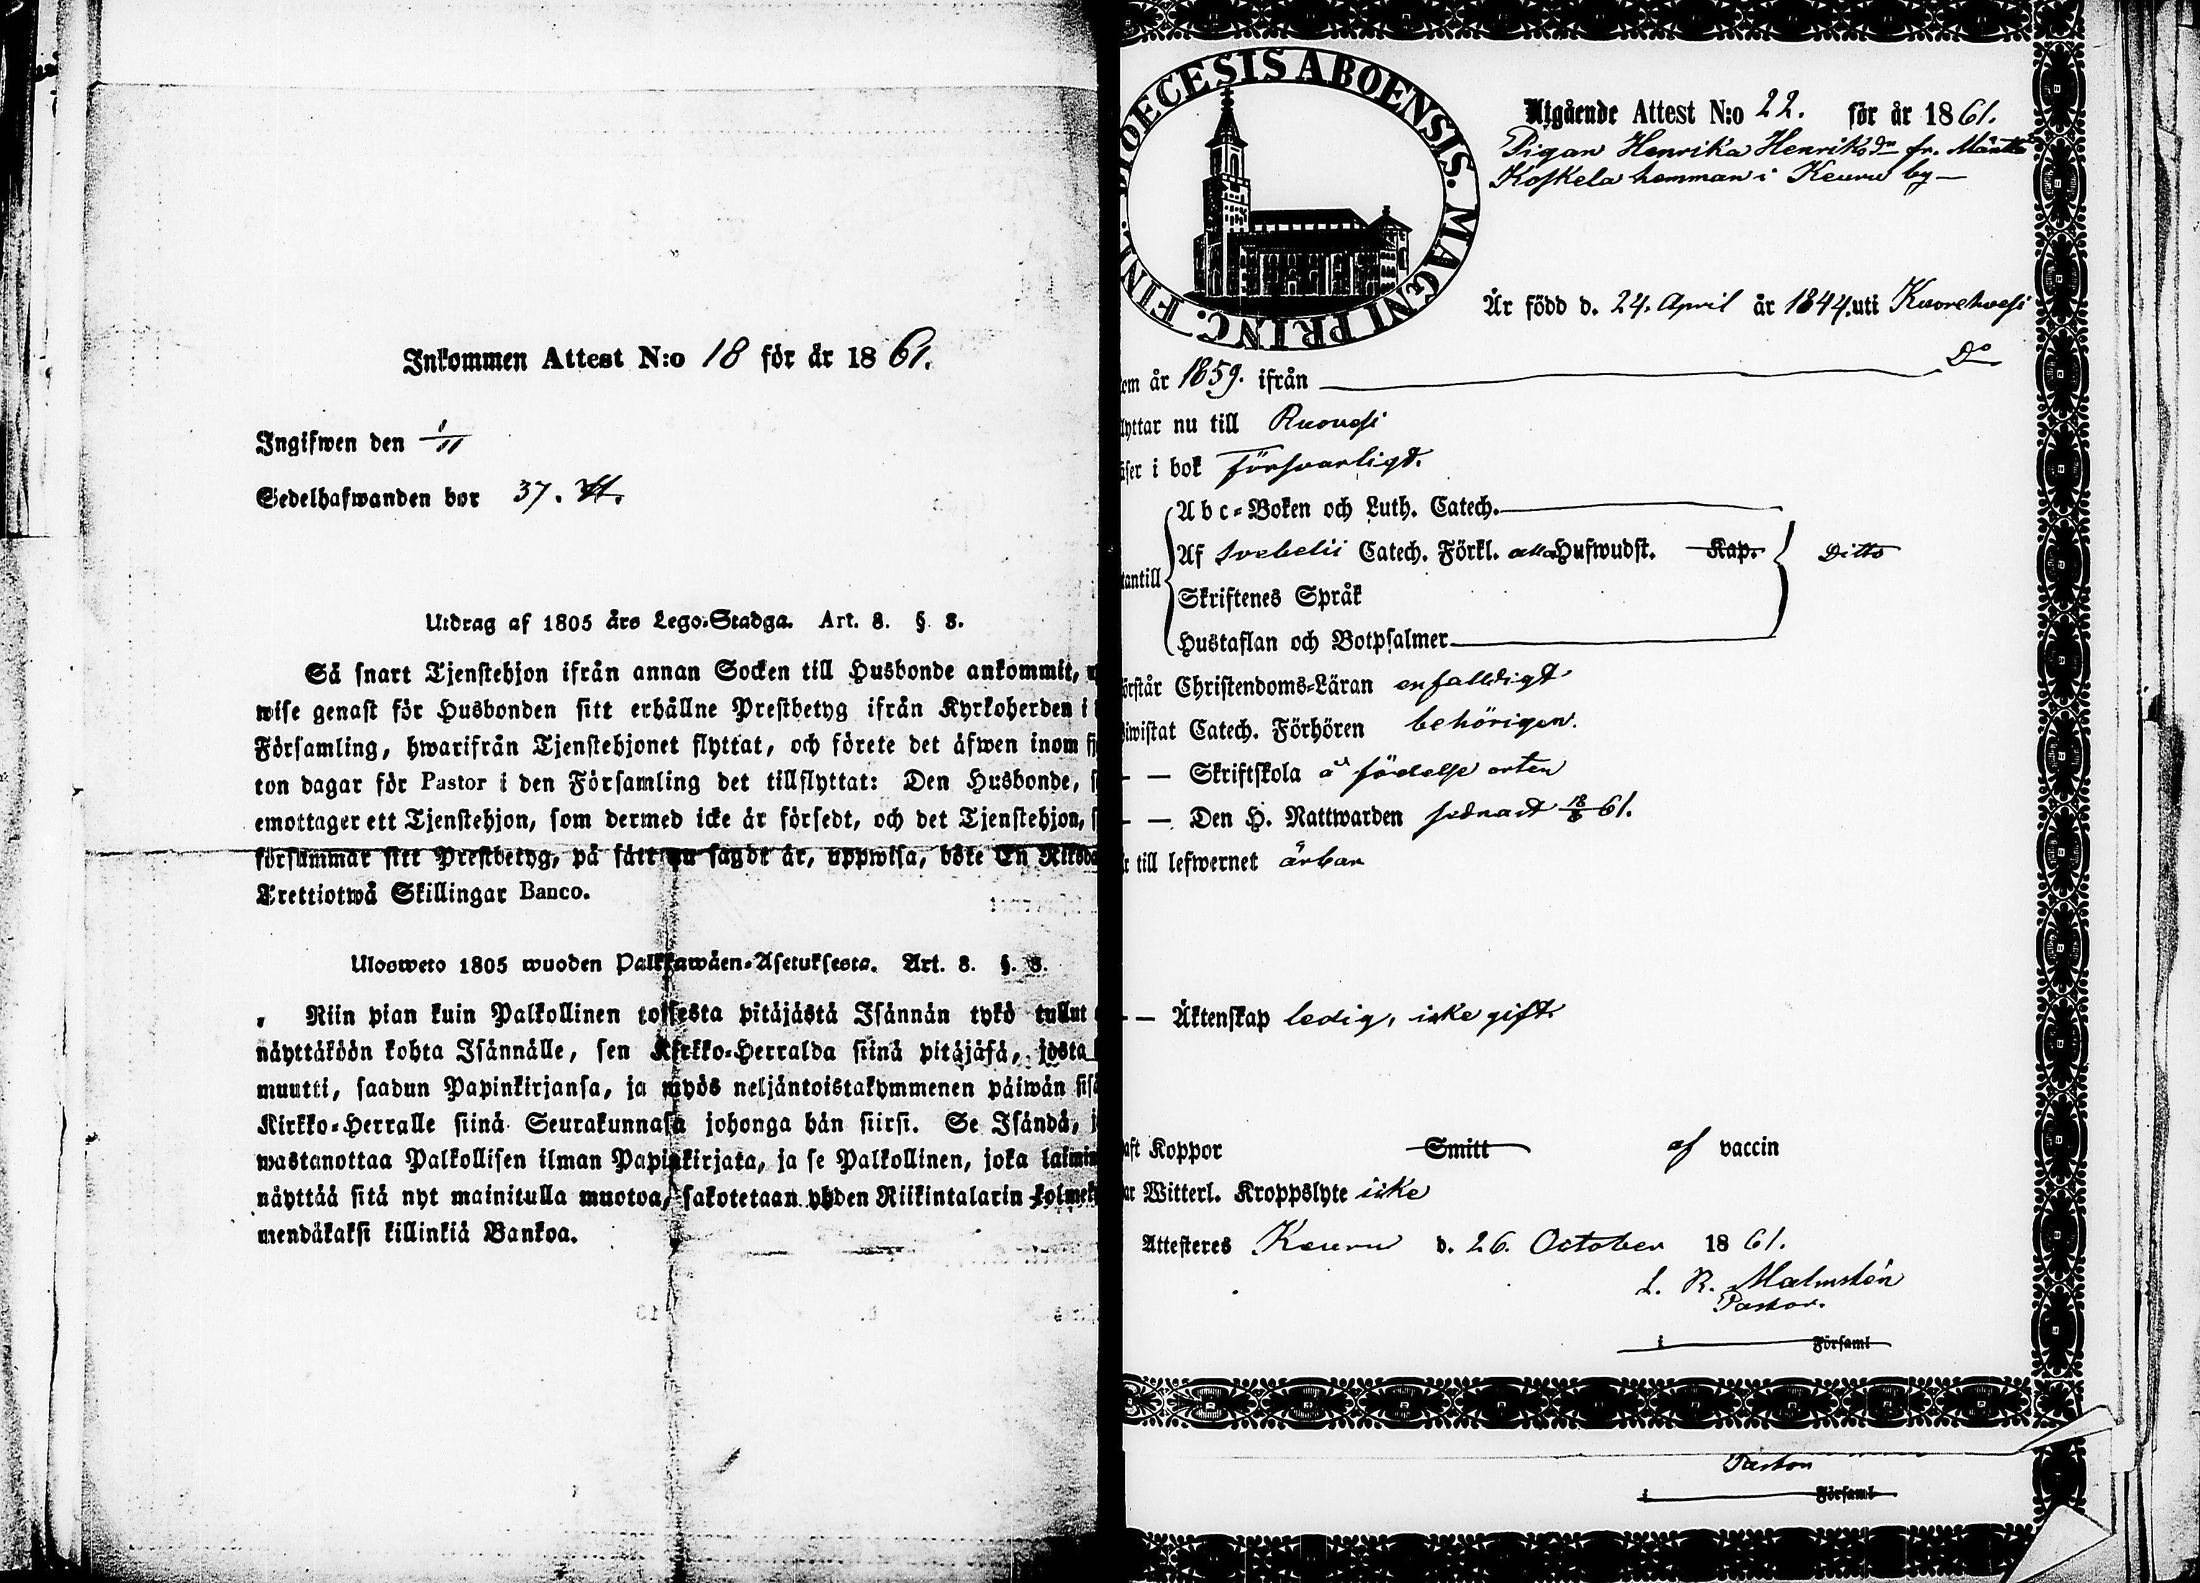 Inkommen Attest N:o 18 för år 1861.
Ingifwen den 1/11
Sedelhafwanden bor 37.
Utdrag af 1805 års Lego-Stadga. Art. 8. § 8.
Så snart Tjenstehjon ifrån annan Socken till Husbonde ankommit,
wise genast för Husbonden sitt erhållne Prestbetyg ifrån Kyrkoherden i
Församling, hwarifrån Tjenstehjonet flyttat, och förete det äfwen inom fj
ton dagar för Pastor i den Församling det tillflyttat: Den Husbonde, s
emottager ett Tjenstehjon, som dermed icke är försedt, och det Tjenstehjon, s
försummar sitt Prestbetyg, på sätt nu sagdt är, uppwisa, böte En Riksda
Trettiotwå Skillingar Banco.
Ulosweto 1805 wuoden Palkkawäen-Asetuksesta. Art. 8. §. 8.
Niin pian kuin Palkollinen toisesta pitäjästä Isännän tykö tullut
näyttäköön kohta Isännälle, sen Kirkko-Herralda siinä pitäjäsä, josta
muutti, saadun Papinkirjansa, ja myös neljäntoistakymmenen päiwän sisä
Kirkko-Herralle siinä Seurakunnasa johonga hän siirsi. Se Isändä, j
wastanottaa Palkollisen ilman Papinkirjata, ja se Palkollinen, joka laimin
näyttää sitä nyt mainitulla muotoa, sakotetaan yhden Riikintalarin kolmek
mendäkaksi killinkiä Bankoa.
DIOECESIS ABOENSIS. MAGNI PRINC. FINL.
Utgående Attest N:o 22. för år 1861.
Pigan Henrika Henriksdr fr. Mänttä
Koskela hemman i Keuru by
Är född d. 24. April år 1844. uti Kuorehvesi
om år 1859. ifrån Do
lyttar nu till Ruovesi
äser i bok försvarligt.
Abc-Boken och Luth. Catech.
tantill Af Svebelii Catech. Förkl. alla Hufwudst. Kap. Ditto
Skriftenes Språk
Hustaflan och Botpsalmer
örstår Christendoms-Läran enfaldigt
iwistat Catech. Förhören behörigen.
— — Skriftskola å födelse orten
— — Den H. Nattwarden sednast 18/8 61.
r till lefwernet ärbar
— — Äktenskap ledig, icke gift
aft Koppor Smitt af vaccin
ar Witterl. Kroppslyte icke
Attesteres Keuru d. 26. October 1861.
L. R. Malmstén
Pastor.
i Församl
Pastor
i Församl